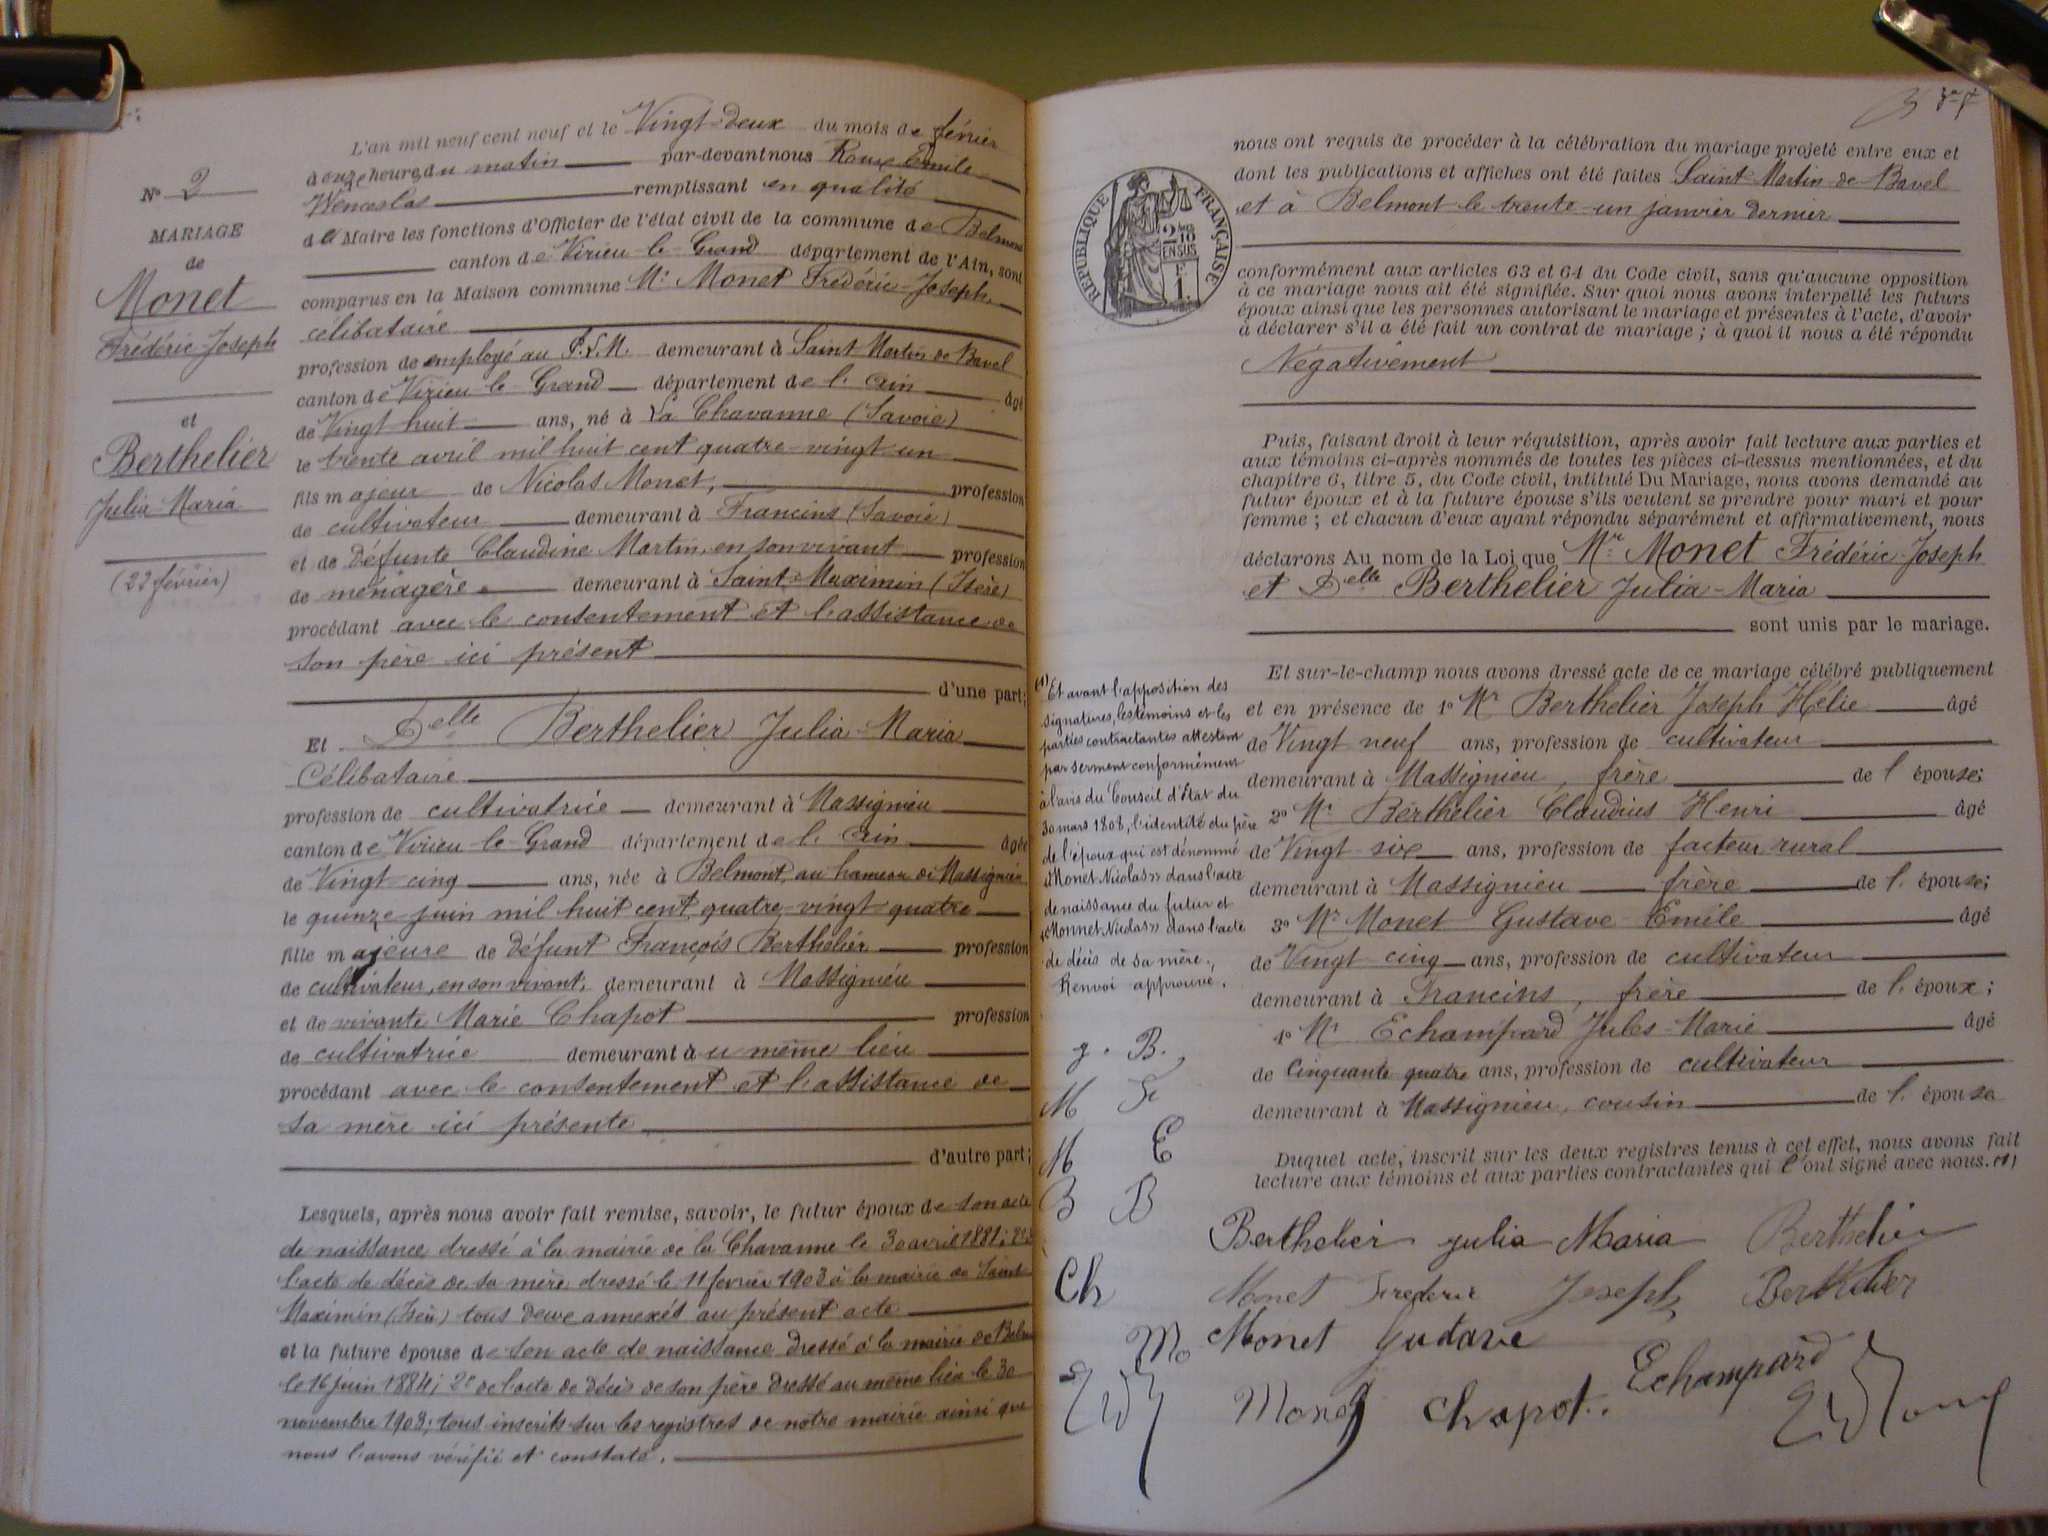 N° 2
MARIAGE
de
Monet
Frédéric-Joseph
et
Berthelier
Julia-Maria
(22 février)
L'an mil neuf cent neuf et le Vingt-deux du mois de février
à onze heures du matin par-devant nous Roux Emile
Wenceslas remplissant en qualité
de Maire les fonctions d'Officier de l'état civil de la commune de Belmont
canton de Virieu-le-Grand département de l'Ain, sont
comparus en la Maison commune Mr Monet Frédéric-Joseph,
célibataire
profession de employé au P.L.M. demeurant à Saint-Martin-de-Bavel
canton de Virieu-le-Grand département de l'Ain âgé
de Vingt-huit ans, né à La Chavanne (Savoie)
le trente avril mil huit cent quatre-vingt-un
fils majeur de Nicolas Monet, profession
de cultivateur demeurant à Francins (Savoie)
et de Défunte Claudine Martin, en son vivant profession
de ménagère demeurant à Saint-Maximin (Isère)
procédant avec le consentement et l'assistance de
son père ici présent
d'une part;
Et Delle Berthelier Julia-Maria
Célibataire
profession de cultivatrice demeurant à Massignieu
canton de Virieu-le-Grand département de l'Ain âgée
de Vingt-cinq ans, née à Belmont, au hameau de Massignieu
le quinze juin mil huit cent quatre-vingt-quatre
fille majeure de Défunt François Berthelier profession
de cultivateur, en son vivant, demeurant à Massignieu
et de vivante Marie Chapot profession
de cultivatrice demeurant au même lieu
procédant avec le consentement et l'assistance de
sa mère ici présente
d'autre part;
Lesquels, après nous avoir fait remise, savoir, le futur époux de son acte
de naissance dressé à la mairie de la Chavanne le 30 avril 1881; 2°
l'acte de décès de sa mère dressé le 11 février 1903 à la mairie de Saint
Maximin (Isère) tous deux annexés au présent acte
et la future épouse de son acte de naissance dressé à la mairie de Belmont
le 16 juin 1884; 2° de l'acte de décès de son père dressé au même lieu le 30
novembre 1903; tous inscrits sur les registres de notre mairie ainsi que
nous l'avons vérifié et constaté.
RÉPUBLIQUE FRANÇAISE
2/10
EN SUS
1 F.
nous ont requis de procéder à la célébration du mariage projeté entre eux et
dont les publications et affiches ont été faites Saint-Martin-de-Bavel
et à Belmont le trente-un janvier dernier
conformément aux articles 63 et 64 du Code civil, sans qu'aucune opposition
à ce mariage nous ait été signifiée. Sur quoi nous avons interpellé les futurs
époux ainsi que les personnes autorisant le mariage et présentes à l'acte, d'avoir
à déclarer s'il a été fait un contrat de mariage; à quoi il nous a été répondu
Négativement
Puis, faisant droit à leur réquisition, après avoir fait lecture aux parties et
aux témoins ci-après nommés de toutes les pièces ci-dessus mentionnées, et du
chapitre 6, titre 5, du Code civil, intitulé Du Mariage, nous avons demandé au
futur époux et à la future épouse s'ils veulent se prendre pour mari et pour
femme; et chacun d'eux ayant répondu séparément et affirmativement, nous
déclarons Au nom de la Loi que Mr Monet Frédéric-Joseph
et Delle Berthelier Julia-Maria
sont unis par le mariage.
Et sur-le-champ nous avons dressé acte de ce mariage célébré publiquement
et en présence de 1° Mr Berthelier Joseph Hélie âgé
de Vingt neuf ans, profession de cultivateur
demeurant à Massignieu, frère de l'épouse;
2° Mr Berthelier Claudius Henri âgé
de Vingt-six ans, profession de facteur rural
demeurant à Massignieu frère de l'épouse;
3° Mr Monet Gustave Emile âgé
de Vingt cinq ans, profession de cultivateur
demeurant à Francins, frère de l'époux;
4° Mr Echampard Jules-Marie âgé
de Cinquante quatre ans, profession de cultivateur
demeurant à Massignieu, cousin de l'épouse
Duquel acte, inscrit sur les deux registres tenus à cet effet, nous avons fait
lecture aux témoins et aux parties contractantes qui l'ont signé avec nous. (1)
(1) Et avant l'apposition des
signatures, les témoins et les
parties contractantes attestent
par serment conformément
à l'avis du Conseil d'Etat du
30 mars 1808, l'identité du père
de l'époux qui est dénommé
"Monet Nicolas" dans l'acte
de naissance du futur et
"Monnet Nicolas" dans l'acte
de décès de sa mère.,
Renvoi approuvé.
J. B.
M F
M E
B B
Ch
Mo
Berthelier Julia Maria Berthelier
Monet Frederic Joseph Berthelier
Monet Gustave
Monet Chapot. Echampard